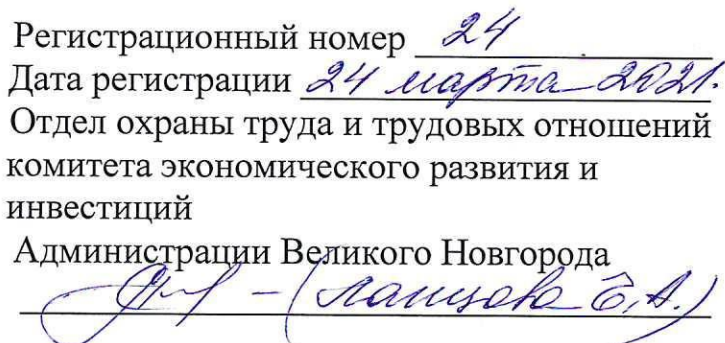 Регистрационный номер 24
Дата регистрации 24 марта 2021.
Отдел охраны труда и трудовых отношений
комитета экономического развития и
инвестиций
Администрации Великого Новгорода
(Ланцова Е.А.)